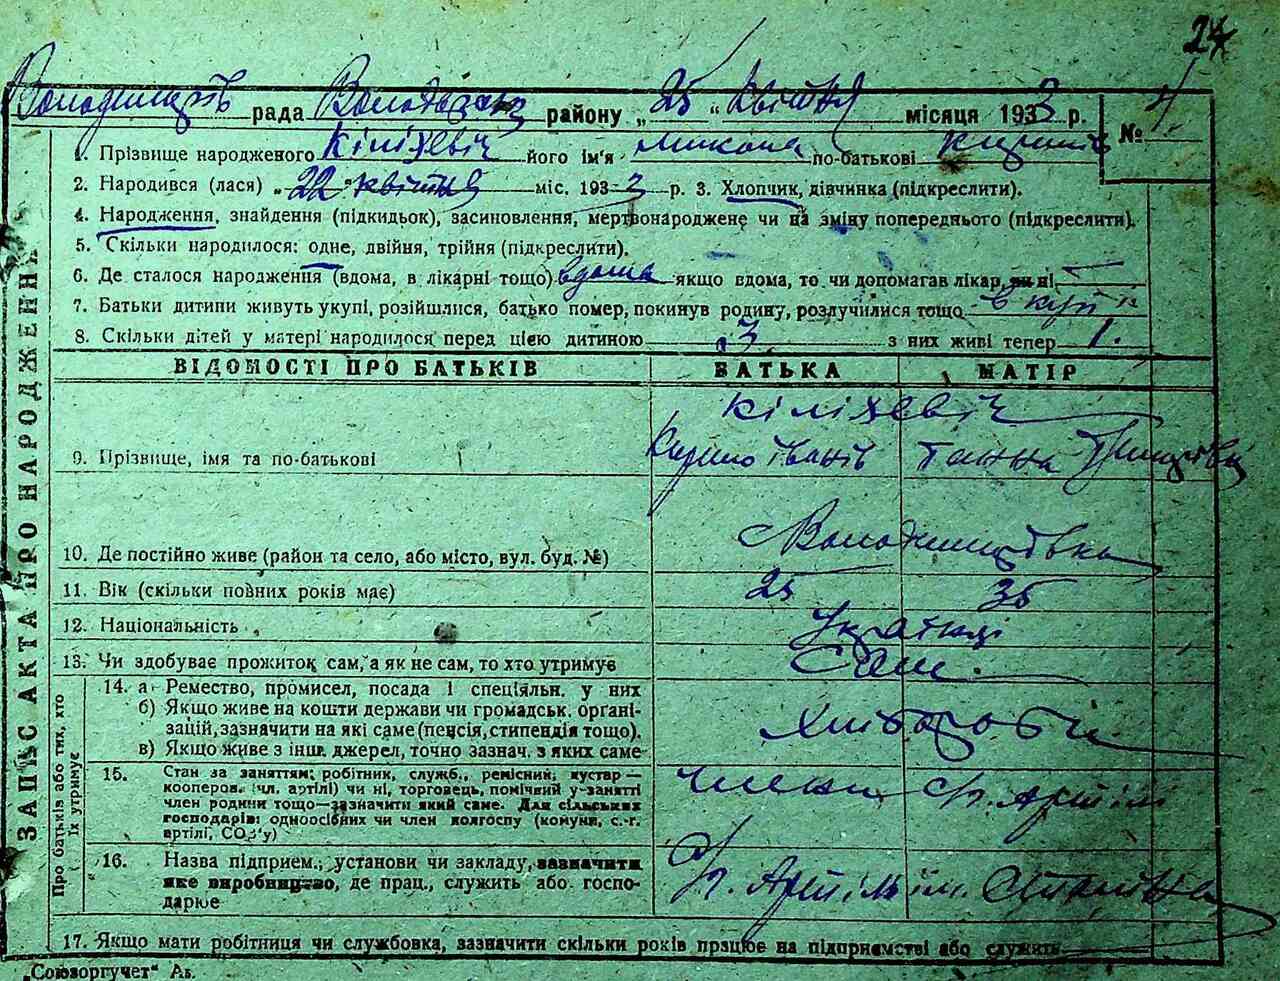 24
рада района „25 “ квітня місяця 1933 р. № 4.
1. Прізвище народженого Кіліхевіч його ім'я Микола по-батькові
2. Народився (лася) „22 “ квітня міс. 1933 р. 3. Хлопчик, дівчинка (підкреслити).
4. Народження, знайдення (підкидьок), засиновлення, мертвонароджене чи на зміну попереднього (підкреслити).
5. Скільки народилося: одне, двійня, трійня (підкреслити).
6. Де сталося народження (вдома, в лікарні тощо) вдома якщо вдома, то чи допомагав лікар, чи ні
7. Батьки дитини живуть укупі, розійшлися, батько помер, покинув родину, розлучилися тощо в купі
8. Скільки дітей у матері народилося перед цією дитиною 3 з них живі тепер 1.
ВІДОМОСТІ ПРО БАТЬКІВ БАТЬКА МАТІР
Кіліхевіч
9. Прізвище, імя та по-батькові Іванів Ганна
10. Де постійно живе (район та село, або місто, вул. буд. №)
11. Вік (скільки повних років має) 25
12. Національність Українці
13. Чи здобуває прожиток сам, а як не сам, то хто утримує Сам.
14. а Ремество, промисел, посада і спеціяльн. у них
б) Якщо живе на кошти держави чи громадськ. органі-
зацій, зазначити на які саме (пенсія, стипендія тощо). Хлібороби
в) Якщо живе з інш. джерел, точно зазнач. з яких саме
15. Стан за заняттям: робітник, служб., ремісний, кустар — члени с/г. артілі
кооперов. (чл. артілі) чи ні, торговець, помічний у занятті
член родини тощо—зазначити який саме. Для сільських
господарів: одноосібних чи член колгоспу (комуни, с.-г.
артілі, СОЗ'у)
16. Назва підприєм., установи чи закладу, зазначити
яке виробництво, де прац., служить або госпо- с/г. Артіль ім.
дарює
17. Якщо мати робітниця чи службовка, зазначити скільки років працює на підприємстві або служить
ЗАПИС АКТА ПРО НАРОДЖЕННЯ
Про батьків або тих, хто
їх утримує
„Союзоргучет“ Аб.